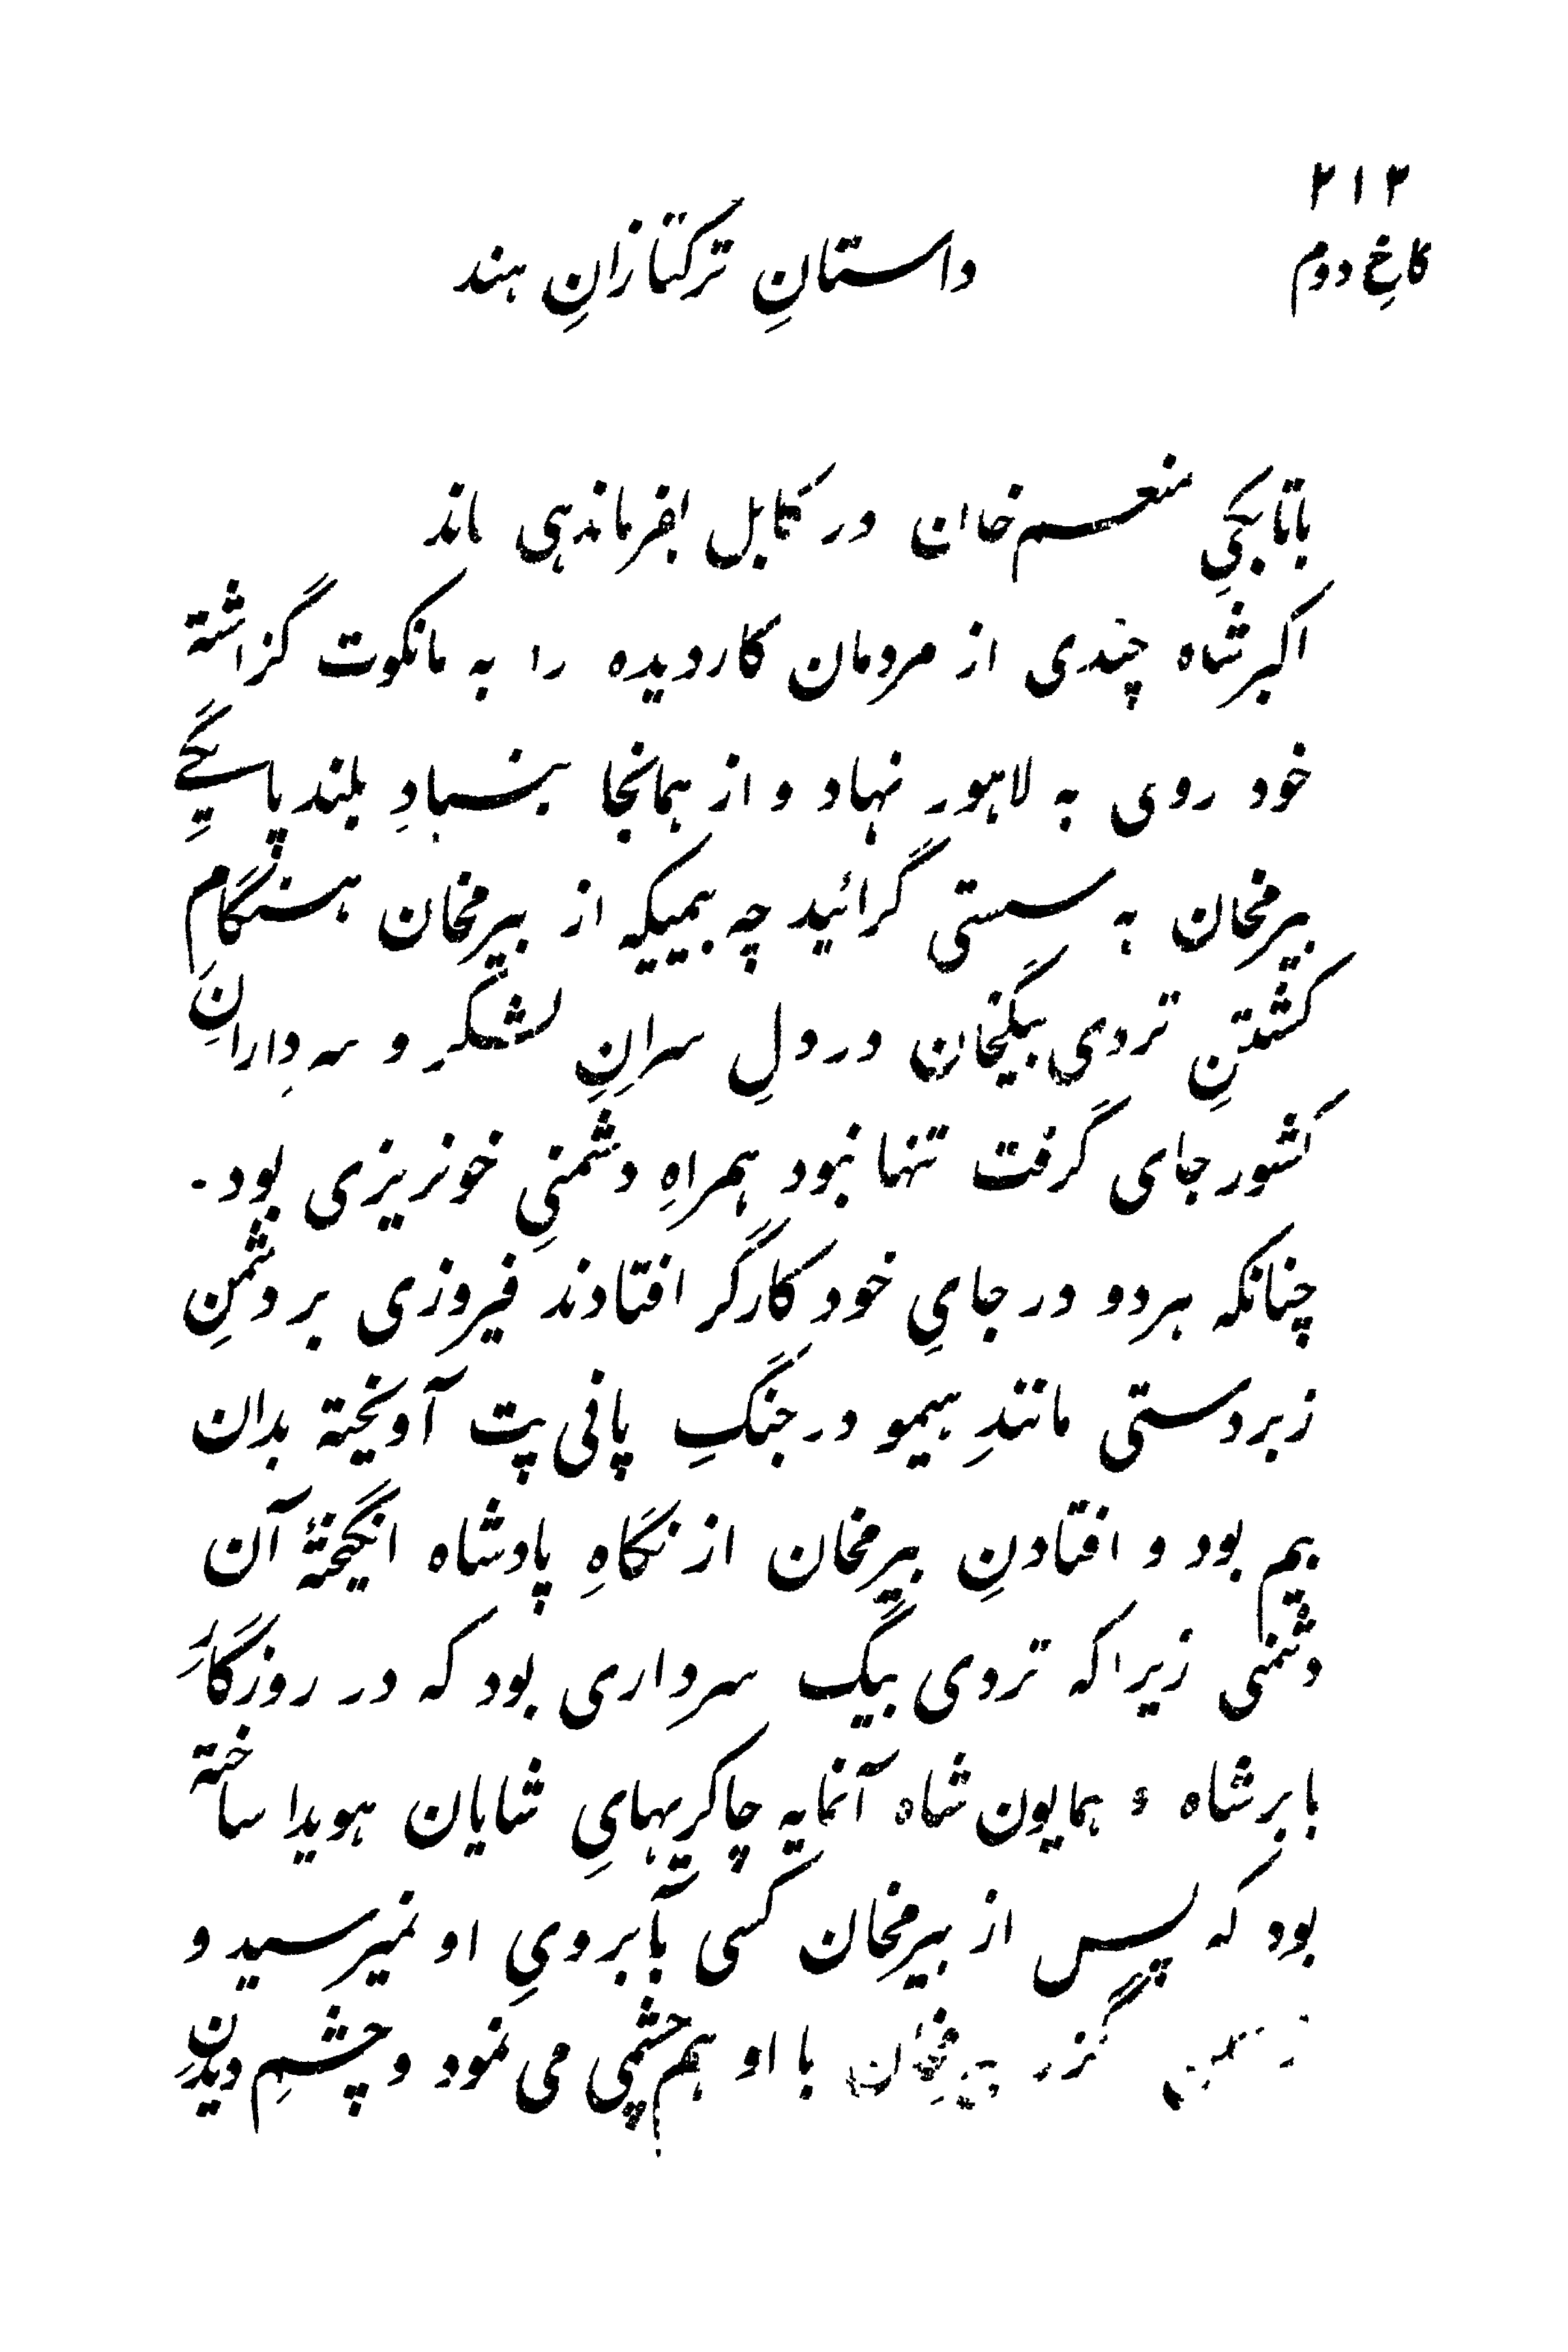 ۲۱۳
کاخِ دوم
داستانِ ترکتازانِ هند
باتابکیِ منعم خان در کابل بفرماندهی ماند
اکبرشاه چندی از مردمان کاردیده را به مانکوت گزاشته
خود روی به لاهور نهاد و از همانجا بنیادِ بلندپایگیِ
بیرمخان به سستی گرائید چه بیمیکه از بیرمخان هنگامِ
کشتنِ تردی بیگخان در دلِ سرانِ لشکر و سردارانِ
کشور جای گرفت تنها نبود همراهِ دشمنیِ خونریزی بود.
چنانکه هردو در جایِ خود کارگر افتادند فیروزی بر دشمنِ
زبردستی مانندِ هیمو در جنگِ پانی پت آویخته بدان
بیم بود و افتادنِ بیرمخان از نگاهِ پادشاه انگیختهٔ آن
دشمنی زیراکه تردی بیگ سرداری بود که در روزگارِ
بابرشاه و همایون شاه آنمایه چاکریهایِ شایان هویدا ساخته
بود که پس از بیرمخان کسی بآبرویِ او نمیرسید و
گزر بیرمخان با او هم چشمی می نمود و چشمِ دیدنِ